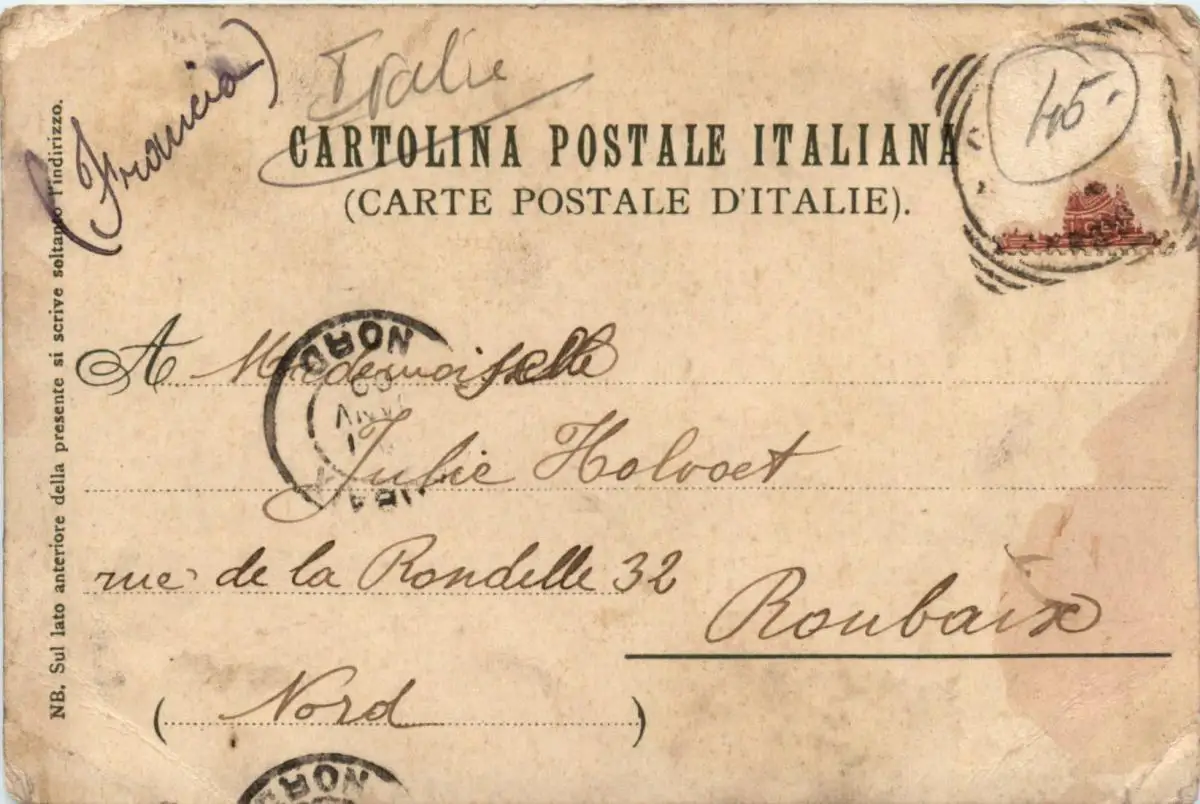 (Francia)
Italie
45.
CARTOLINA POSTALE ITALIANA
(CARTE POSTALE D'ITALIE).
NB. Sul lato anteriore della presente si scrive soltanto l'indirizzo.
A Mademoiselle
Julie Holvoet
rue de la Rondelle 32
Roubaix
(Nord)
NORD
JANV
NORD